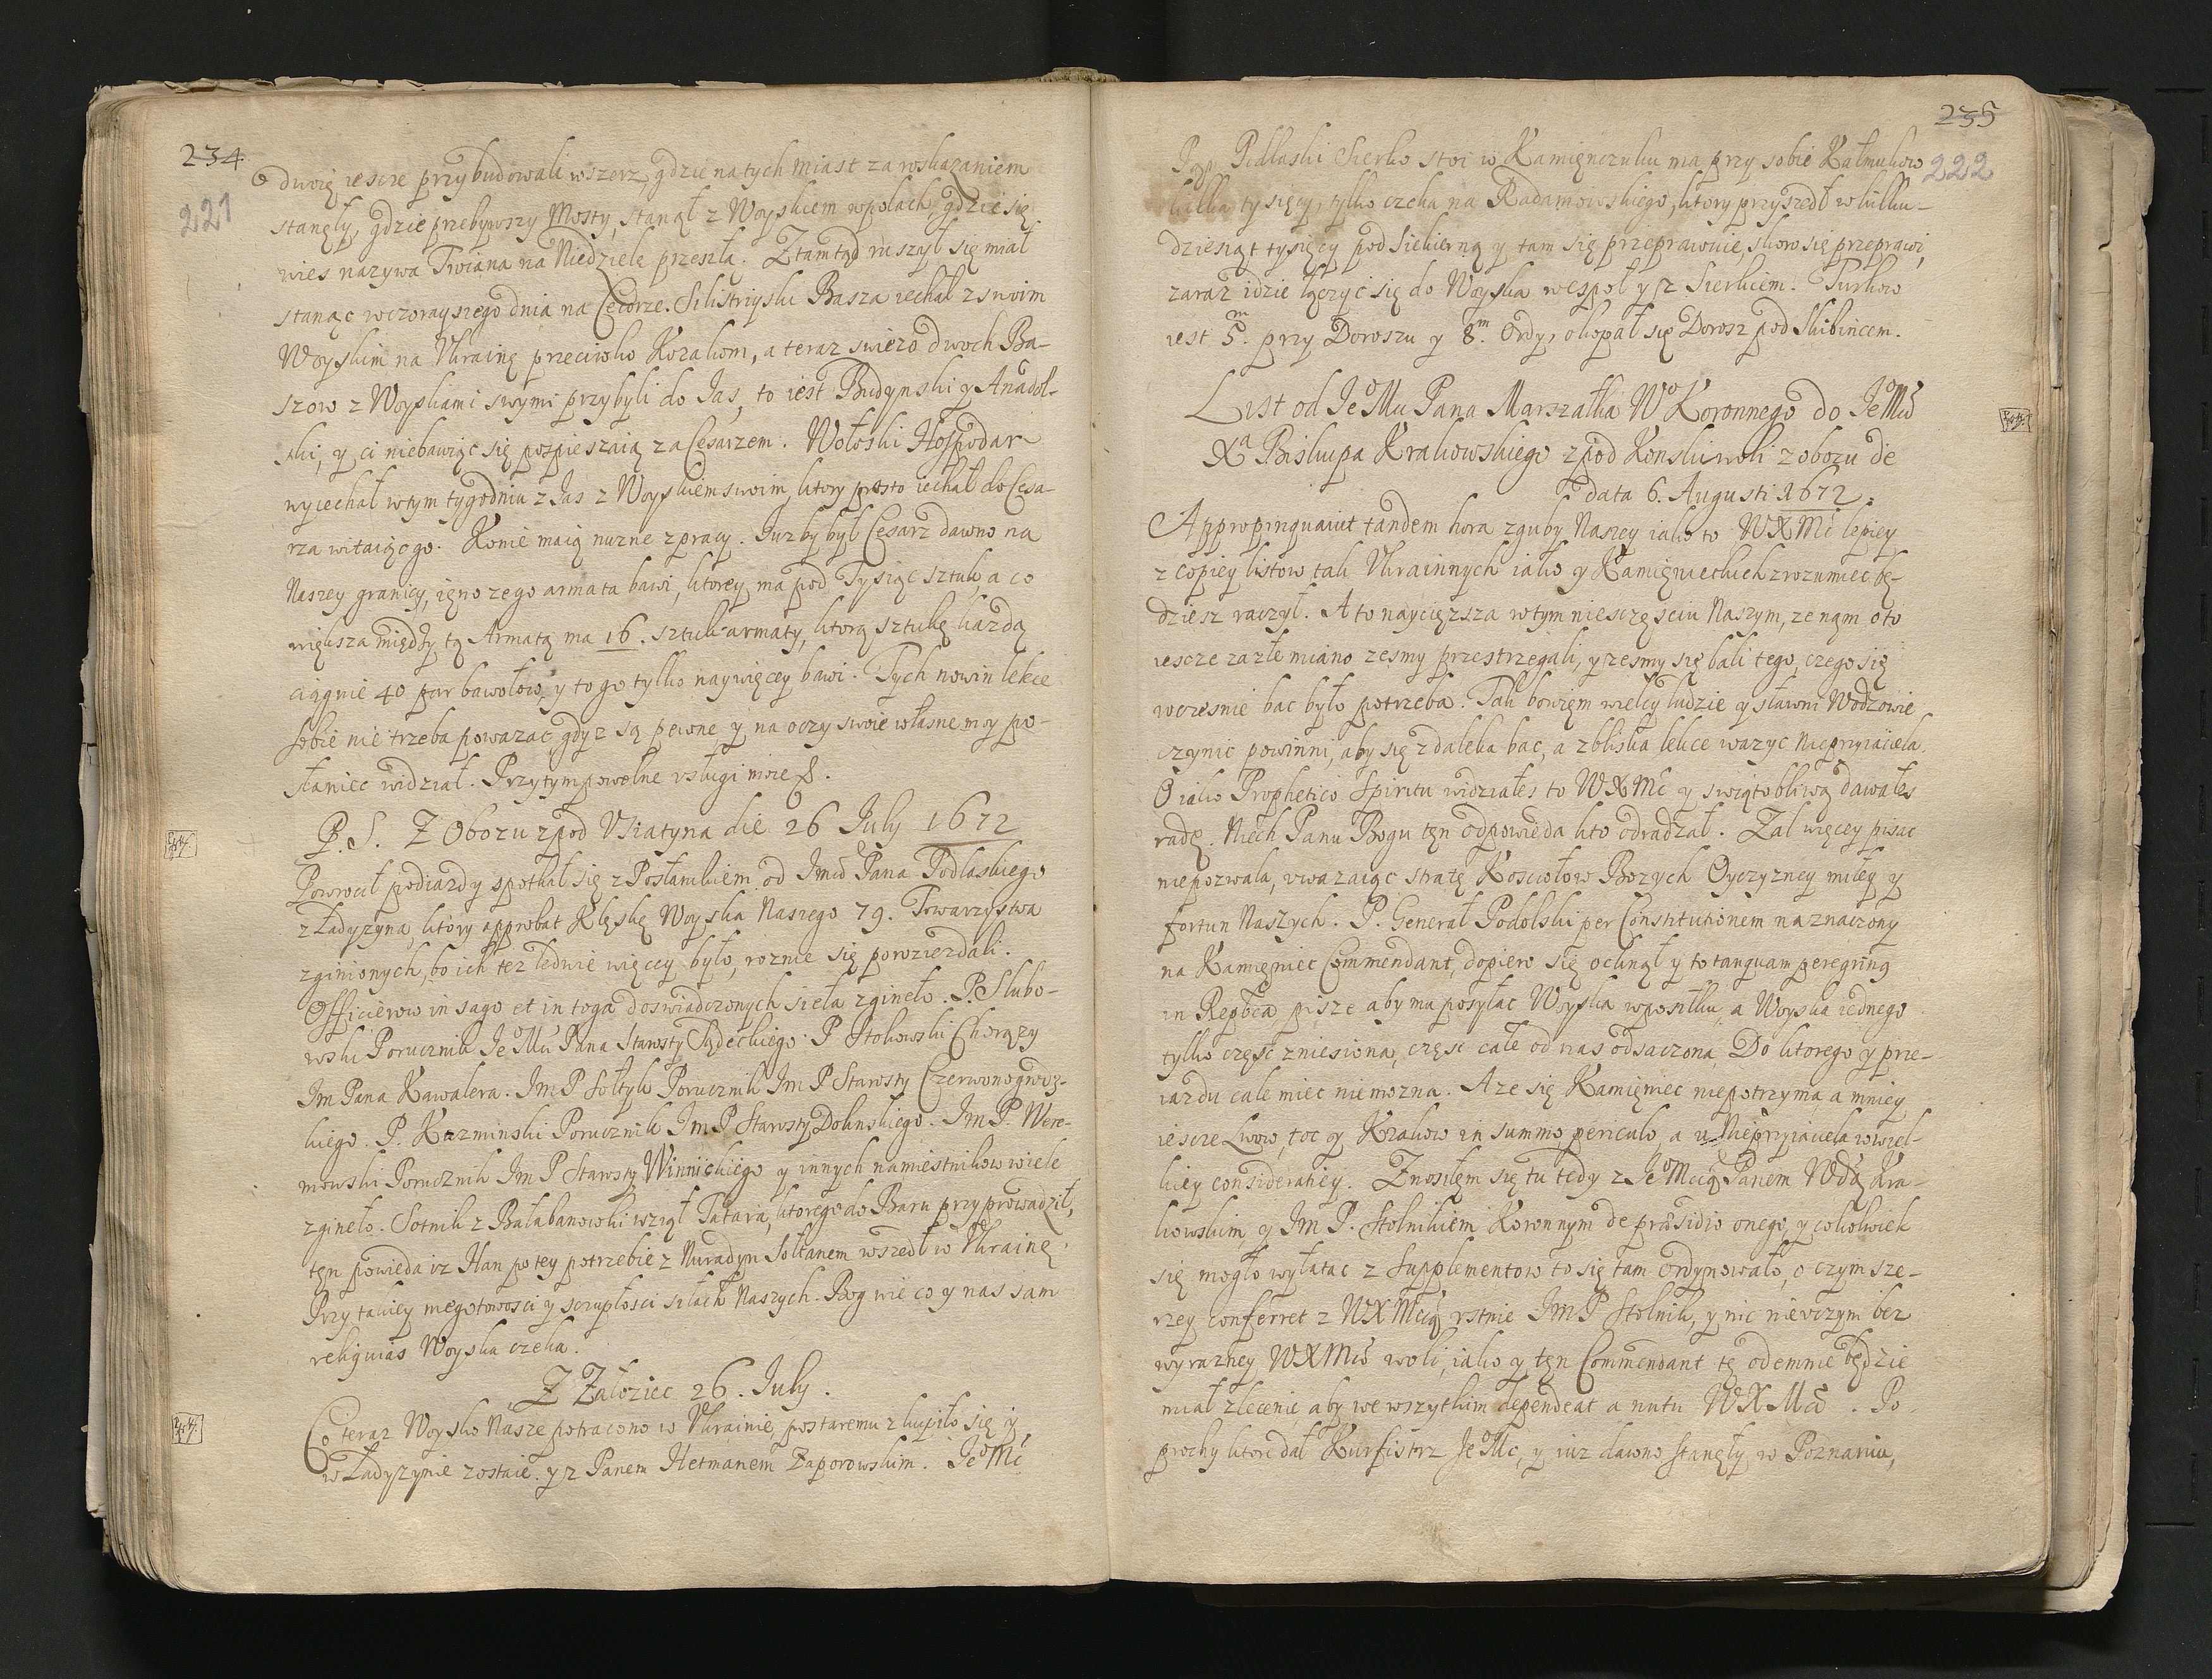 234
221
dwoię iescze przybudowali wszerz, gdzie natych miast za wskazaniem
stanęły, gdzie przebywszy Mosty, stanął z Woyskiem wpolach, gdzie się
wies nazywa Twiana na Niedzielę przeszłą. Ztamtąd ruszyć się miał
stanąc wczorayszego dnia na Cecorze. Silistriyski Basza iechał z swoim
Woyskim na Ukrainę przeciwko Kozakom, a teraz swiezo dwoch Ba-
szow z Woyskami swymi przybyli do Jas, to iest Budynski y Anadol-
ski, y ci niebawiąc się pospieszaią za Cesarzem. Wołoski Hospodar
wyiechał wtym tygodniu z Jas z Woyskiem swoim, ktory prosto iechał do Cesa-
rza witaiącego. Konie maią nuzne z pracy. Juz by był Cesarz dawno na
Naszey granicy, ięno zego armata bawi, ktorey ma pod Tysiąc sztuk, a co
większa między tą Armatą ma 16. sztuk armaty, ktorą sztukę kazdą
ciągnie 40 par bawołow, y to go tylko naywięcey bawi. Tych nowin lekce
sobie nie trzeba powazac, gdyz są pewne y na oczy swoie własne moy po-
słaniec widział. Przytym powolne usługi moie &.
P. S. Z Obozu zpod Usiatyna die 26 July 1672
Powrocił podiazdy spotkał się z Posłannikiem od Imci Pana Podlaskiego
z Ładyzyna, ktory approbat Klęskę Woyska Naszego 79. Towarzystwa
zginionych, bo ich tez ledwie więcey było, roznie się porozierdali.
Officierow in sago et in toga doswiadczonych siela zgineło. P. Slubo-
wski Porucznik JeoMci Pana Starosty Sądeckiego. P Stokowski Chorązy
Im Pana Kawalera. Im P Sołtyk Porucznik Im P Starosty Czerwonogrodz-
kiego. P. Kuzminski Porucznik Im P Starosty Dolinskiego. Im P. Were-
mowski Porucznik Im P Starosty Winnickiego y innych namiestnikow wiele
zgineło. Sotnik z Bałabanowki wziął Tatara, ktorego do Baru przyprowadził,
tęn powieda iz Han po tey potrzebie z Nuradyn Sołtanem wszedł w Ukrainę.
Przy takiey niegotowosci y scrupłosci siłach Naszych. Bog wie co y nas sam
religuias Woyska czeka.
Z Załoziec 26. July.
Co teraz Woysko Nasze potracono w Ukrainie, postaremu zkupiło się iz
w Ładyzynie zostaie. y z Panem Hetmanem Zaporowskim. JeoMc
235
222
P. Podlaski Sierko stoi w Kamięnczuku ma przy sobie Kałmukow
kilka tysięcy, tylko czeka na Radamowskiego, ktory przyszedł w kilku-
dziesiąt tysięcy pod Siekierną y tam się przeprawuie, skoro się przeprawi,
zaraz idzie łączyc się do Woyska wespoł y z Sierkiem. Turkow
iest 5.m przy Doroszu y 8.m Ordy, okopał się Dorosz pod Kubincem.
List od JeoMci Pana Marszałka Wo Koronnego do JeoMci
Xa Biskupa Krakowskiego zpod Konskiwoli z obozu de
data 6. Augusti 1672.
Appropinquavit tandem hora zguby Naszey iako to WXMc lepiey
z copiey listow tak Ukrainnych iako y Kamięnieckich zrozumiec bę-
dziesz raczył. A to naycięzsza w tym niesczęsciu Naszym, ze nąm o to
iescze zazłe miano zesmy przestrzegali, y zesmy się bali tego, czego się
wczesnie bac było potrzeba. Tak bowięm wielcy ludzie y sławni Wodzowie
czynic powinni, aby się z daleka bac, a z bliska lekce wazyc Nieprzyiaciela.
O iako Prophetico Spiritu widziałes to WXMc y swiątobliwą dawałes
radę. Niech Panu Bogu tęn odpowieda kto odradzał. Zal więcey pisac
niepozwala, uwazaiąc stratę Kosciołow Bozych Oyczyzney miłey y
fortun Naszych. P. Generał Podolski per Constitutionem naznaczony
na Kamięniec Commendant, dopiero się ocknął y to tanquam peregrinq
in Repbca, pisze aby ma posyłac Woyska w posiłku, a Woyska iednego
tylko częsc zniesiona, częsc cale od nas odsaczona, Do ktorego y prze-
iazdu cale miec niemozna. A ze się Kamięniec niepotrzyma, a mniey
iescze Lwow, toc y Krakow in summo periculo, a u Nieprzyiaciela w wiel-
kiey consideratiey. Znosiłęm się tu tedy z JeoMcią Panem Wdą Kra-
kowskim, y Im P. Stolnikiem Koronnym de præsidio onego, y cokolwiek
się mogło wyłatac z Supplementow to się tam ordynowało, o czym sze-
rzey conferret z WXMcią ustnie Im P Stolnik, y nic nieuczyni bez
wyrazney WXMci woli, iako y tęn Commendant tę odemnie będzie
miał zlecenie, aby we wszytkim dependeat a nutu WXMci. Po
prochy ktore dał Kurfistrz JeoMc, y iuz dawno stanęły w Poznaniu,